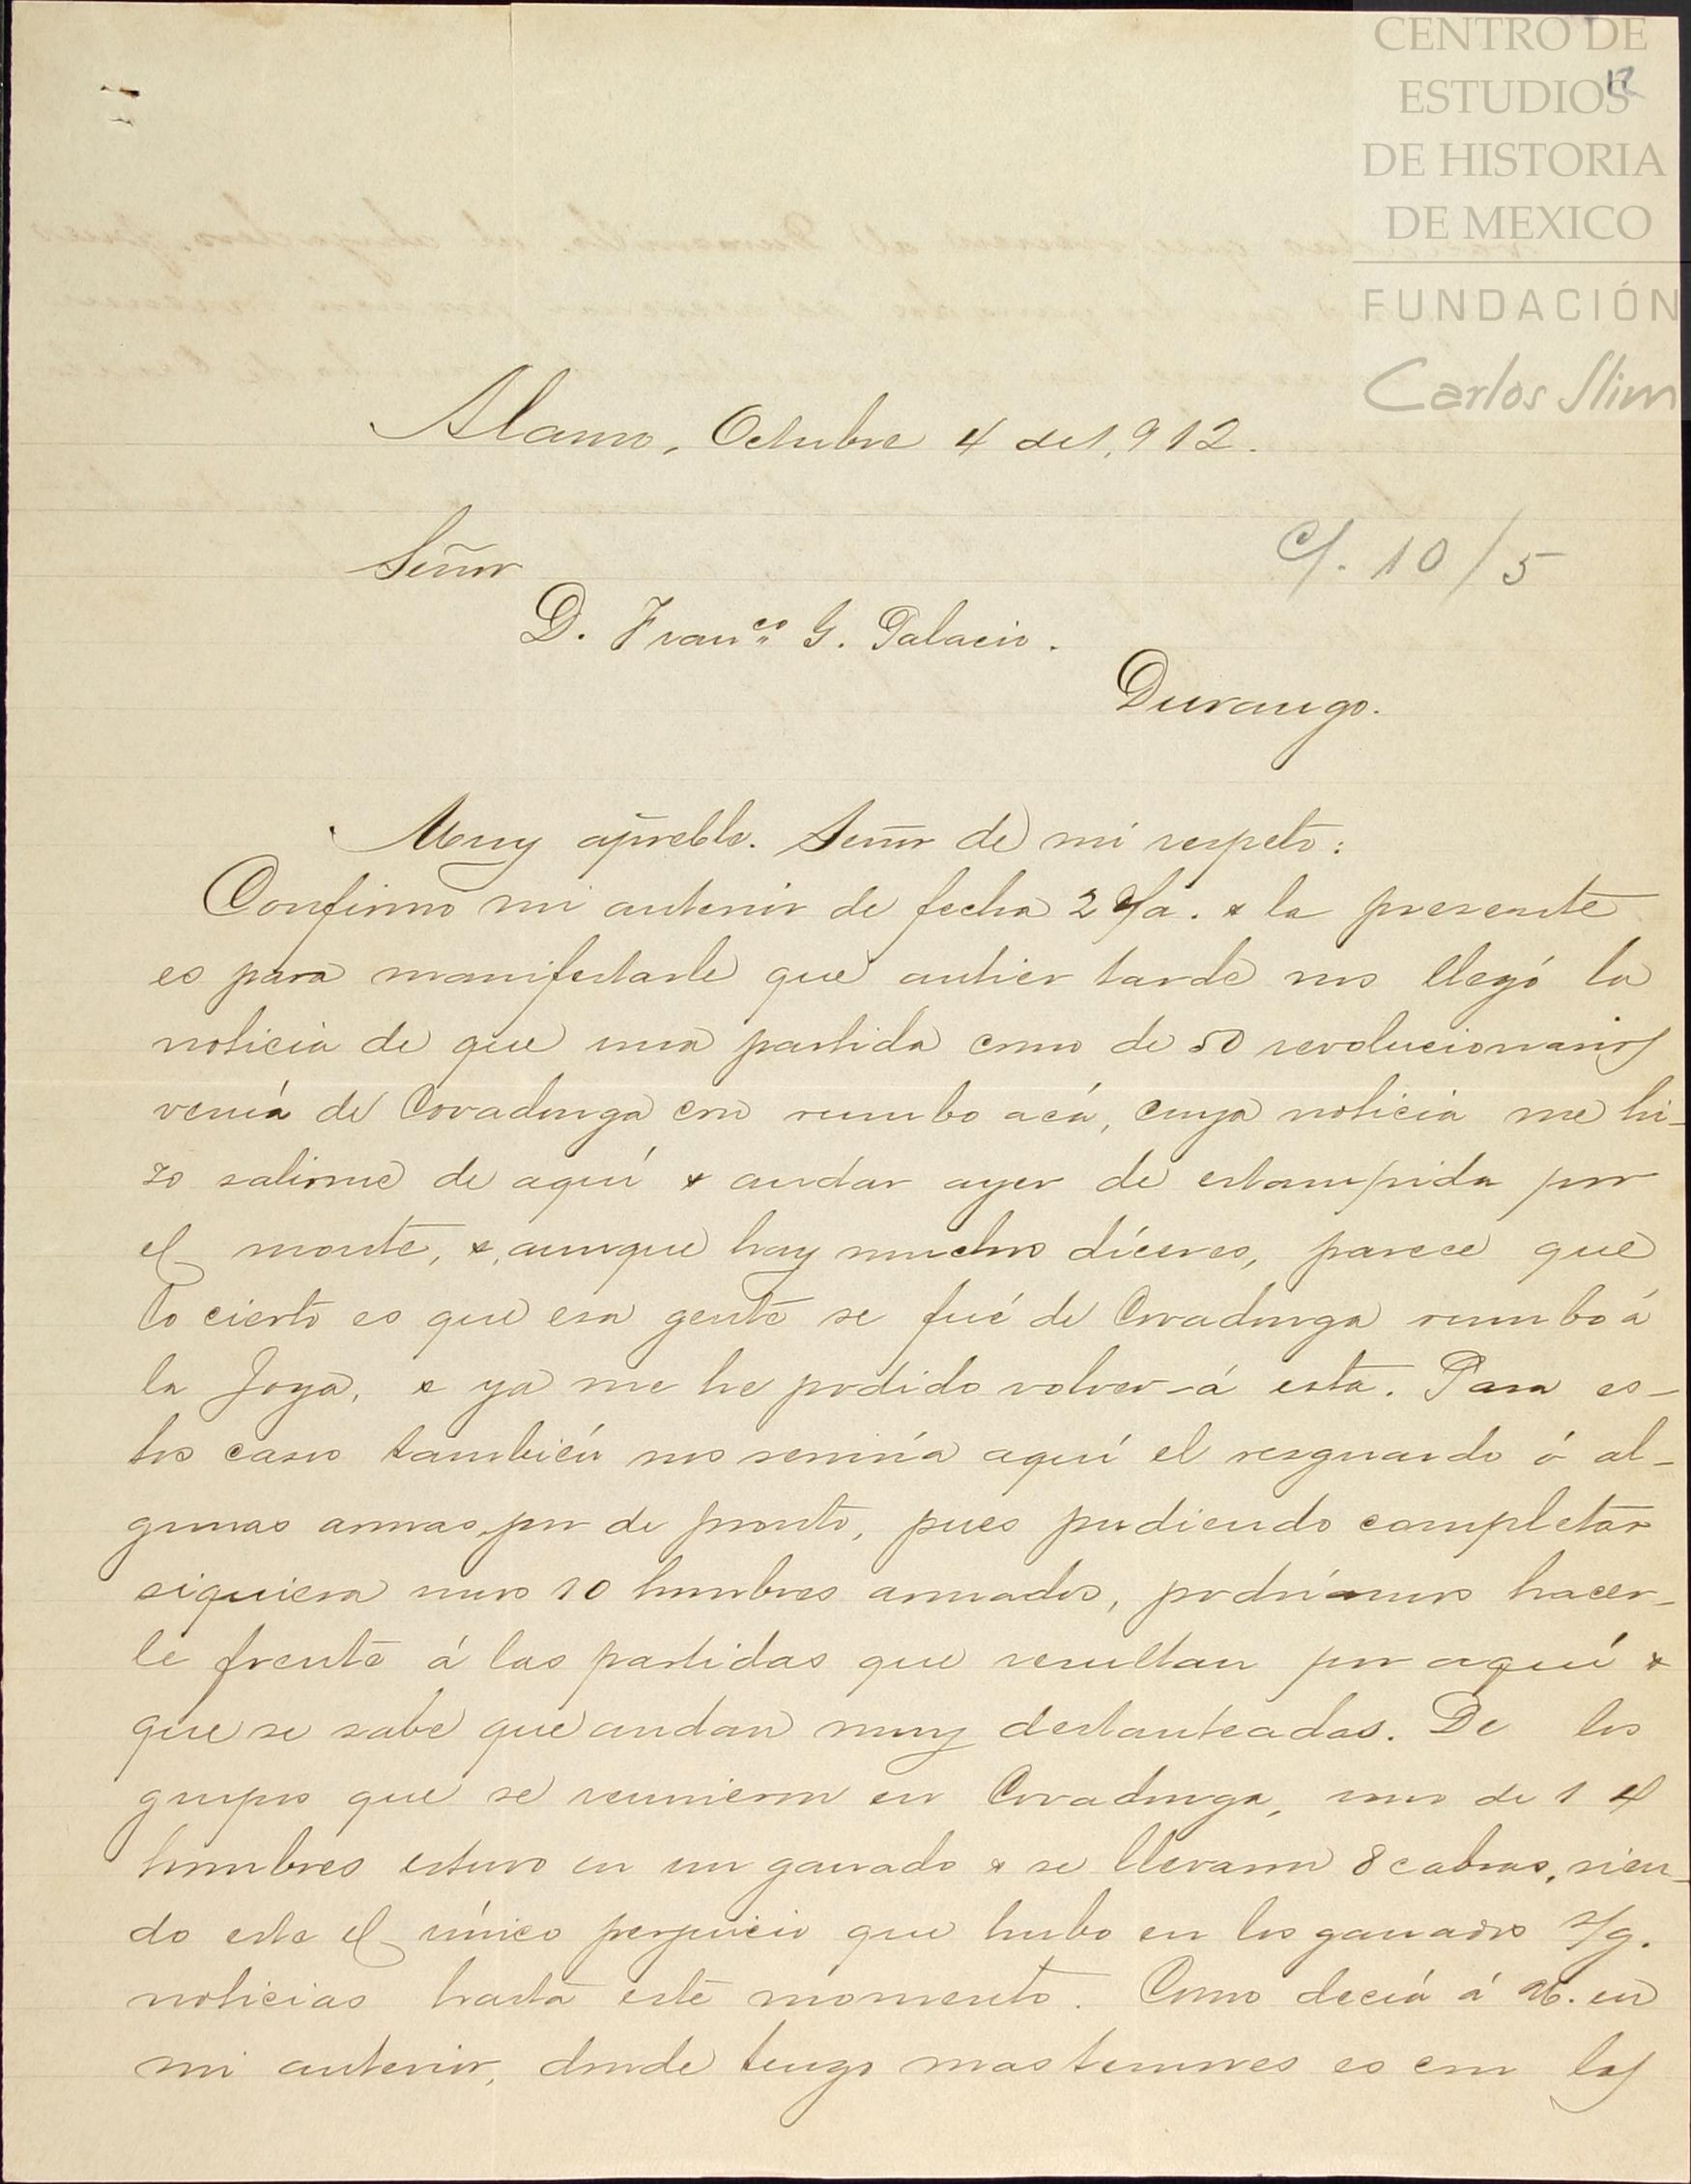 CENTRO DE
ESTUDIOS
DE HISTORIA
DE MEXICO
FUNDACIÓN
Carlos Slim
12
Alamo, Octubre 4 de 1,912.
Señor
C/. 10/5
D. Franco. G. Palacio.
Durango.
Muy apreble. Señor de mi respeto:
Confirmo mi anterior de fecha 2 . & la presente
es para manifestarle que antier tarde nos llegó la
noticia de que una partida como de 50 revolucionarios
venía de Covadonga con rumbo acá, cuya noticia me hi-
zo salirme de aquí & andar ayer de estampida por
el monte, & aunque hay muchos díceres, parece que
lo cierto es que esa gente se fué de Covadonga rumbo á
la Joya, & ya me he podido volver á esta. Para es-
tos casos también nos serviría aquí el resguardo ó al-
gunas armas por de pronto, pues pudiendo completar
siquiera unos 10 hombres armados, podríamos hacer-
le frente á las partidas que resultan por aquí &
que se sabe que andan muy destanteadas. De los
grupos que se reunieron en Covadonga, uno de 14
hombres estuvo en un ganado & se llevaron 8 cabras, sien-
do este el único perjuicio que hubo en los ganados s/g.
noticias hasta este momento. Como decía á Ud. en
mi anterior, donde tengo mas temores es con las